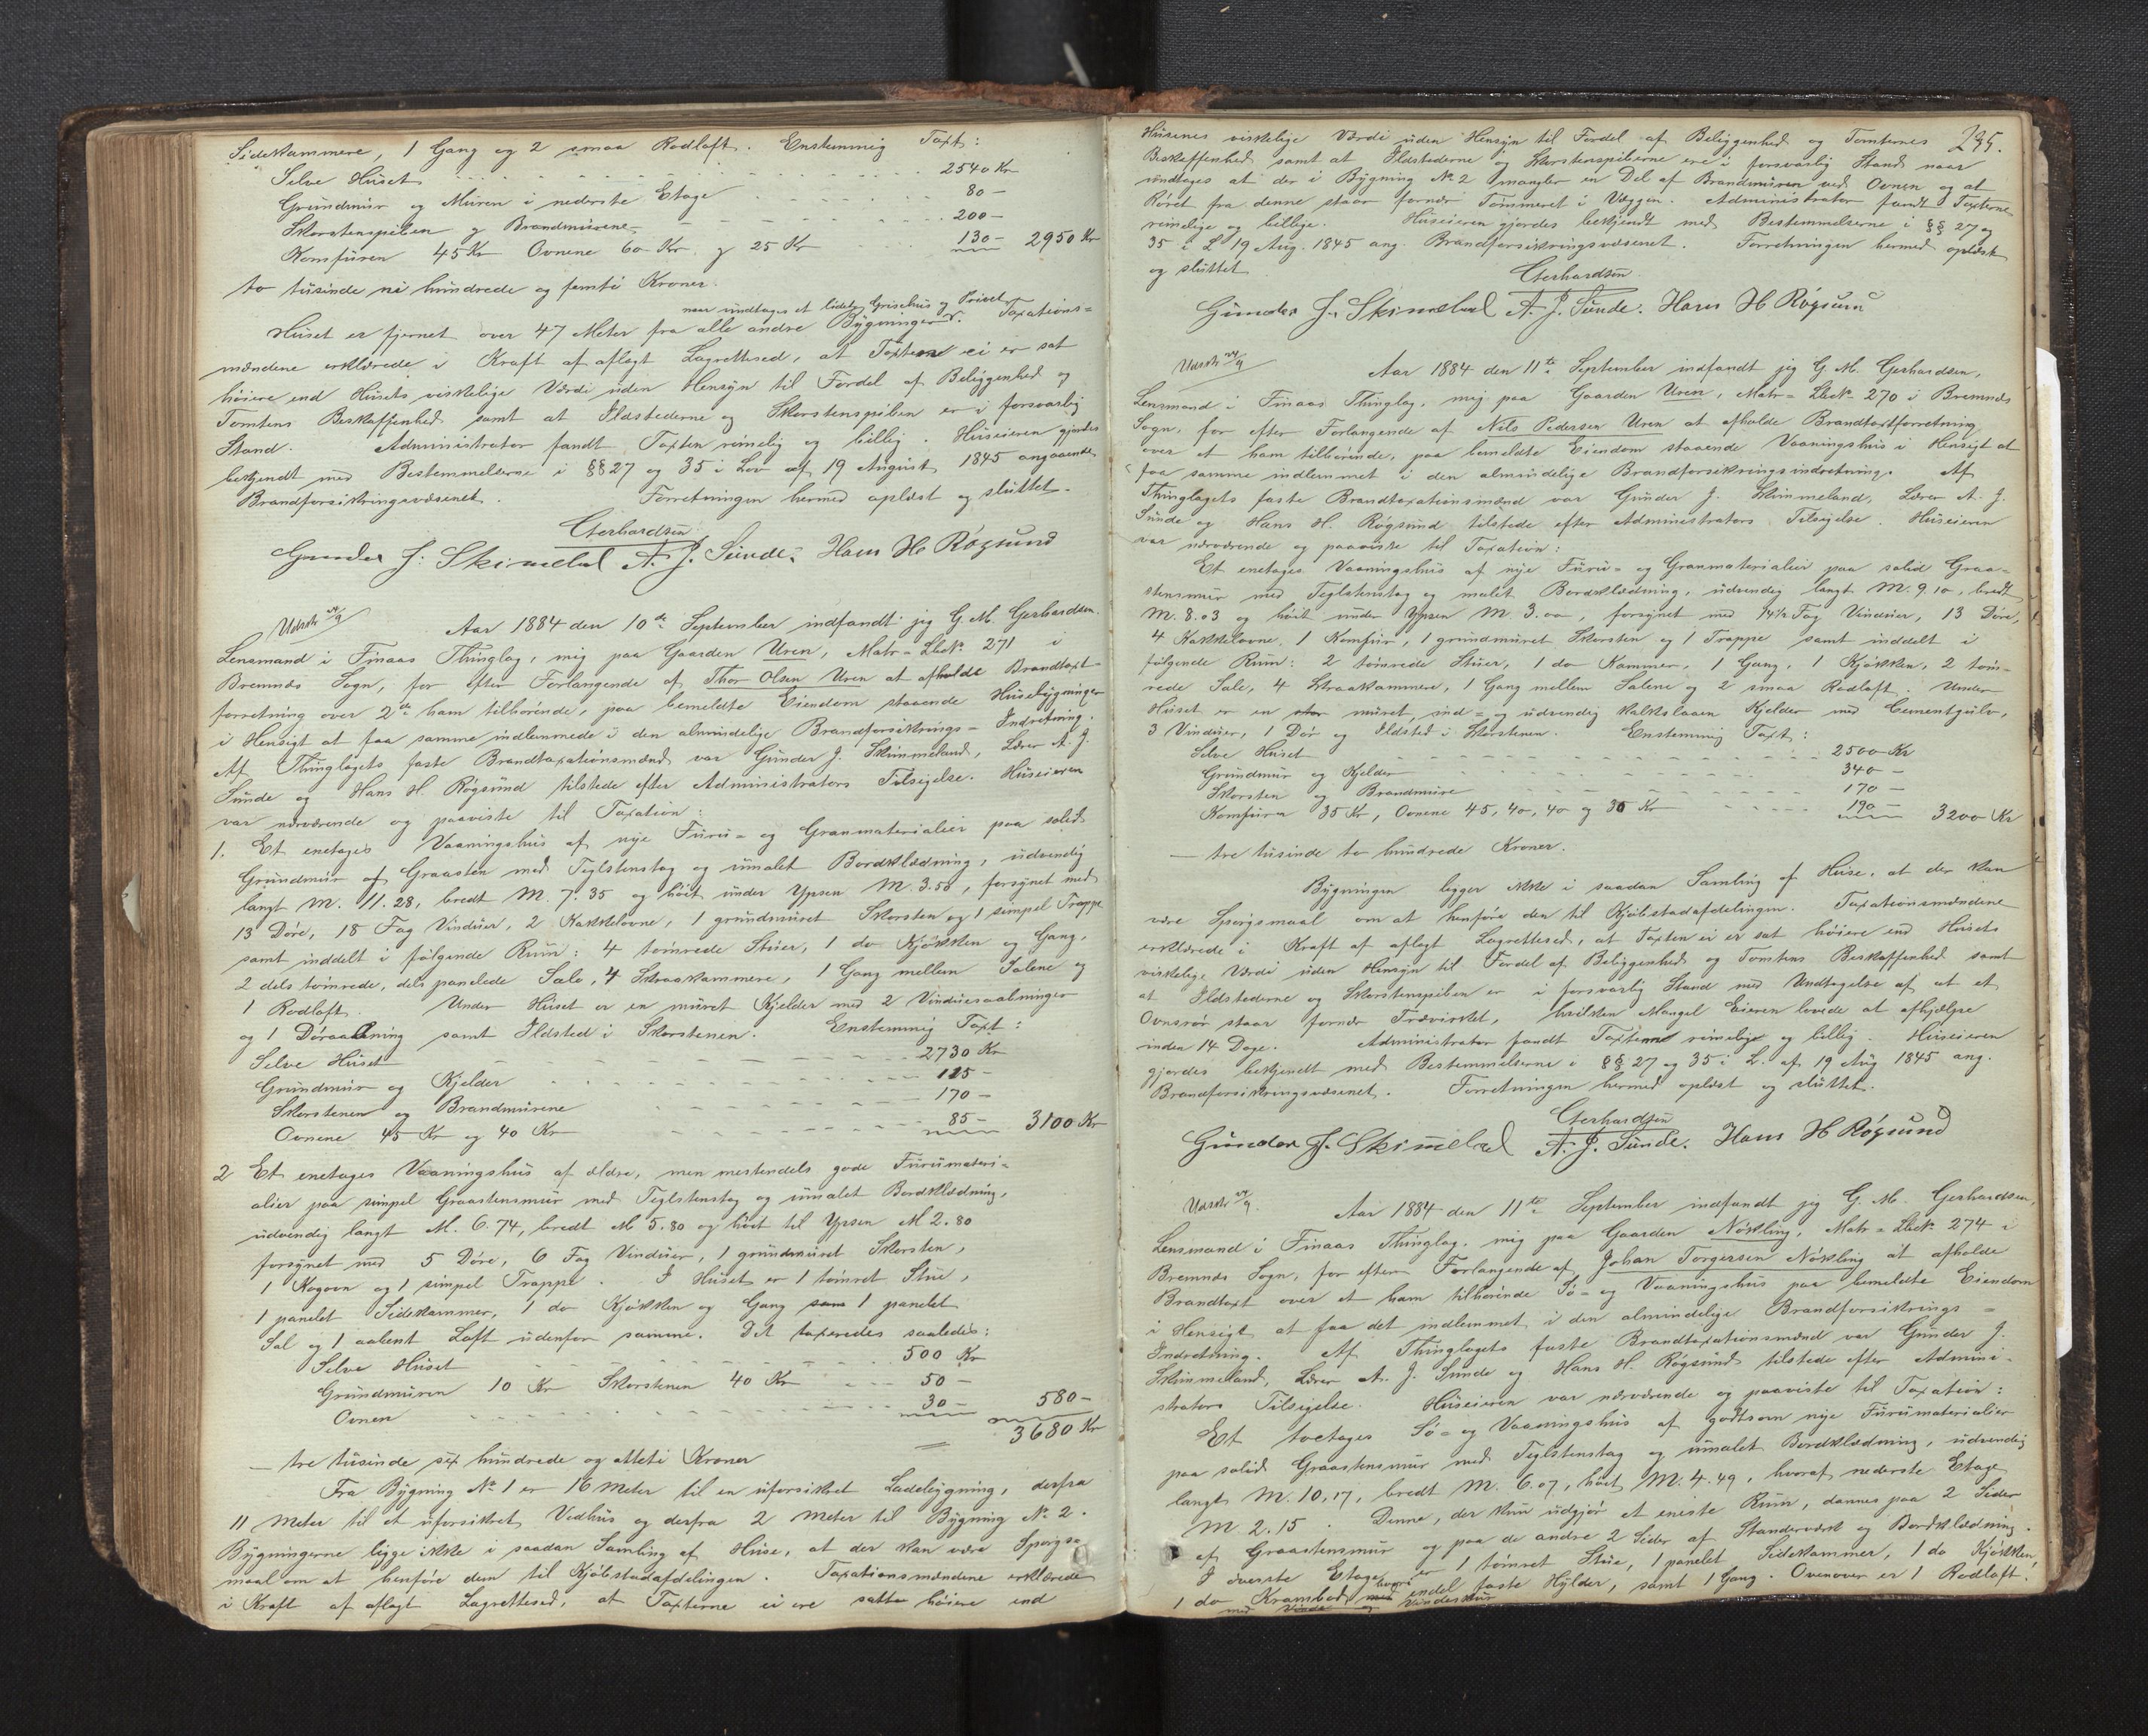 Sidekammere, 1 Gang og 2 smaa Rodloft. Enstemmig Taxt:
Selve Huset 2540 Kr
Grundmur og Muren i nederste Etage 80 —
Skorstenspiben og Brandmurene 200 —
Komfuren 45 Kr Ovnene 60 Kr og 25 Kr 130 — 2950 Kr
to tusinde ni hundrede og femti Kroner.
naar undtages et lidet Grisehus og Privet
Huset er fjernet over 47 Meter fra alle andre Bygninger. Taxations-
mændene erklærede i Kraft af aflagt Lagrettesed, at Taxten ei er sat
høiere end Husets virkelige Værdi uden Hensyn til Fordel af Beliggenhed og
Tomtens Beskaffenhed samt at Ildstederne og Skorstenspiben er i forsvarlig
Stand. Administrator fandt Taxten rimelig og billig. Huseieren gjordes
bekjendt med Bestemmelserne i §§ 27 og 35 i Lov af 19 August 1845 angaaende
Brandforsikringsvæsenet. Forretningen hermed oplæst og sluttet.
Gerhardsen
Gunder J. Skimeland A. J. Sunde. Hans H Røgsund
Udsch 24/9
Aar 1884 den 10de September indfandt jeg G. M. Gerhardsen.
Lensmand i Finaas Thinglag, mig paa Gaarden Uren, Matr-Løb No 271 i
Bremnæs Sogn, for efter Forlangende af Thor Olsen Uren at afholde Brandtaxt-
forretning over 2de ham tilhørende, paa bemeldte Eiendom staaende Husebygninger
i Hensigt at faa samme indlemmede i den almindelige Brandforsikrings-Indretning.
Af Thinglagets faste Brandtaxationsmænd var Gunder J. Skimmeland, Lærer A. J.
Sunde og Hans H. Røgsund tilstede efter Administrators Tilsigelse. Huseieren
var nærværende og paaviste til Taxation:
1. Et enetages Vaaningshus af nye Furu- og Granmaterialier paa solid
Grundmur af Graasten med Teglstenstag og umalet Bordklædning, udvendig
langt M. 11.28, bredt M. 7.35 og høit under Ypsen M. 3.50, forsynet med
13 Døre, 18 Fag Vinduer, 2 Kakkelovne, 1 grundmuret Skorsten og 1 simpel Trappe
samt inddelt i følgende Rum: 4 tømrede Stuer, 1 do Kjøkken og Gang,
2 dels tømrede, dels panelede Sale, 4 Skraakammere, 1 Gang mellem Salene og
1 Rodloft. Under Huset er en muret Kjelder med 2 Vinduesaabninger
og 1 Døraabning samt Ildsted i Skorstenen. Enstemmig Taxt:
Selve Huset 2730 Kr
Grundmur og Kjelder 115 —
Skorstenen og Brandmurene 170 —
Ovnene 45 Kr og 40 Kr 85 — 3100 Kr
2 Et enetages Vaaningshus af ældre, men mestendels gode Furumateri-
alier paa simpel Graastensmur med Teglstenstag og umalet Bordklædning,
udvendig langt M. 6.74, bredt M 5.80 og høit til Ypsen M 2.80
forsynet med 5 Døre, 6 Fag Vinduer, 1 grundmuret Skorsten,
1 Kogovn og 1 simpel Trappe. I Huset er 1 tømret Stue,
1 panelet Sidekammer, 1 do Kjøkken og Gang 1 panelet
Sal og 1 aabent Loft udenfor samme. Det taxeredes saaledes:
Selve Huset 500 Kr
Grundmuren 10 Kr Skorstenen 40 Kr 50 —
Ovnen 30 — 580 —
3680 Kr
— tre tusinde sex hundrede og otteti Kroner
Fra Bygning No 1 er 16 Meter til en uforsikret Ladebygning, derfra
11 Meter til et uforsikret Vedhus og derfra 2 Meter til Bygning No 2.
Bygningerne ligge ikke i saadan Samling af Huse, at der kan være Spørgs-
maal om at henføre dem til Kjøbstadafdelingen. Taxationsmændene erklærede
i Kraft af aflagt Lagrettesed, at Taxterne ei ere satte høiere end
235.
Husenes virkelige Værdi uden Hensyn til Fordel af Beliggenhed og Tomternes
Beskaffenhed samt at Ildstederne og Skorstenspiberne ere i forsvarlig Stand naar
undtages at der i Bygning No 2 mangler en Del af Brandmuren ved Ovnen og at
Røret fra denne staar fornær Tømmeret i Væggen. Administrator fandt Taxterne
rimelige og billige. Huseieren gjordes bekjendt med Bestemmelserne i §§ 27 og
35 i L 19 Aug. 1845 ang. Brandforsikringsvæsenet. Forretningen hermed oplæst
og sluttet
Gerhardsen
Gunder J. Skimeland A. J. Sunde. Hans H Røgsund
Udsch 24/9
Aar 1884 den 11te September indfandt jeg G. M. Gerhardsen,
Lensmand i Finaas Thinglag, mig paa Gaarden Uren, Matr-Løb No 270 i Bremnæs
Sogn, for efter Forlangende af Nils Pedersen Uren at afholde Brandtaxtforretning
over et ham tilhørende, paa bemeldte Eiendom staaende Vaaningshus i Hensigt at
faa samme indlemmet i den almindelige Brandforsikringsindretning. Af
Thinglagets faste Brandtaxationsmænd var Gunder J. Skimmeland, Lærer A. J.
Sunde og Hans H. Røgsund tilstede efter Administrators Tilsigelse. Huseieren
var nærværende og paaviste til Taxation:
Et enetages Vaaningshus af nye Furu- og Granmaterialier paa solid Graa-
stensmur med Teglstenstag og malet Bordklædning, udvendig langt M. 9.10, bredt
M. 8.03 og høit under Ypsen M 3.00, forsynet med 14½ Fag Vinduer, 13 Døre,
4 Kakkelovne, 1 Komfur, 1 grundmuret Skorsten og 1 Trappe samt inddelt i
følgende Rum: 2 tømrede Stuer, 1 do Kammer, 1 Gang, 1 Kjøkken, 2 tøm-
rede Sale, 4 Skraakammere, 1 Gang mellem Salene og 2 smaa Rodloft. Under
Huset er en muret, ind- og udvendig kalkslaaen Kjelder med Cementgulv,
3 Vinduer, 1 Dør og Ildsted i Skorstenen. Enstemmig Taxt:
Selve Huset 2500 Kr
Grundmur og Kjelder 340 —
Skorsten og Brandmure 170 —
Komfuren 35 Kr, Ovnene 45, 40, 40 og 30 Kr 190 — 3200 Kr
— tre tusinde to hundrede Kroner.
Bygningen ligger ikke i saadan Samling af Huse, at der kan
være Spørgsmaal om at henføre den til Kjøbstadafdelingen. Taxationsmændene
erklærede i Kraft af aflagt Lagrettesed, at Taxten ei er sat høiere end Husets
virkelige Værdi uden Hensyn til Fordel af Beliggenhed og Tomtens Beskaffenhed samt
at Ildstederne og Skorstenspiben er i forsvarlig Stand med Undtagelse af at et
Ovnsrør staar fornær Trævirket, hvilken Mangel Eieren lovede at afhjælpe
inden 14 Dage. Administrator fandt Taxten rimelig og billig. Huseieren
gjordes bekjendt med Bestemmelserne i §§ 27 og 35 i L. af 19 Aug 1845 ang.
Brandforsikringsvæsenet. Forretningen hermed oplæst og sluttet.
Gerhardsen
Gunder J. Skimeland A. J. Sunde. Hans H Røgsund
Udsch 24/9.
Aar 1884 den 11te September indfandt jeg G. M. Gerhardsen,
Lensmand i Finaas Thinglag, mig paa Gaarden Nøkling, Matr-Løb No 274 i
Bremnæs Sogn, for efter Forlangende af Johan Torgersen Nøkling at afholde
Brandtaxt over et ham tilhørende Sø- og Vaaningshus paa bemeldte Eiendom
i Hensigt at faa det indlemmet i den almindelige Brandforsikrings-
Indretning. Af Thinglagets faste Brandtaxationsmænd var Gunder J.
Skimmeland, Lærer A. J. Sunde og Hans H. Røgsund tilstede efter Admini-
strators Tilsigelse. Huseieren var nærværende og paaviste til Taxation:
Et toetages Sø- og Vaaningshus af godtsom nye Furumaterialier
paa solid Graastensmur med Teglstenstag og umalet Bordklædning, udvendig
langt M. 10,17, bredt M. 6.07, høit M. 4.49, hvoraf nederste Etage
M. 2.15. Denne, der kun udgjør et eneste Rum, dannes paa 2 Sider
af Graastensmur og paa de andre 2 Sider af Standerværk og Bordklædning.
I øverste Etage er 1 tømret Stue, 1 panelet Sidekammer, 1 do Kjøkken,
1 do Krambod hvori endel faste Hylder, samt 1 Gang. Ovenover er 1 Rodloft.
med Vinde og Vindeskur